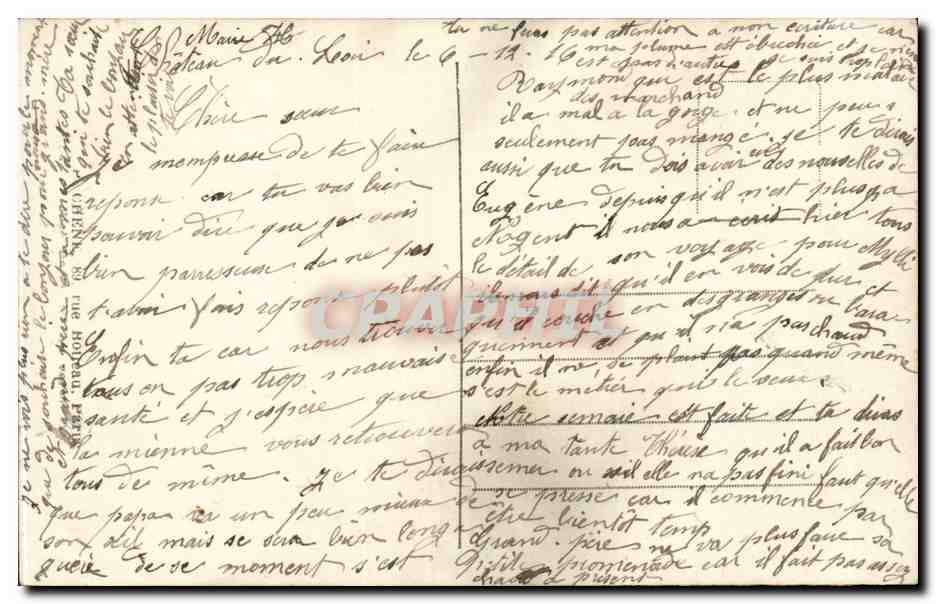 tu ne feras pas attention a mon écriture car
ma plume est ébuchée et je
Château du Loir le 6-12-16
Chère sœur
m'empresse de te faire
reponse car tu vas bien
pouvoir dire que je suis
bien parresseuse de ne pas
t'avoir fais reponse plutôt
Enfin ta car nous trouve
tous en pas trop mauvaise
santé et j'espère que
la mienne vous retrouvera
tous de même. Je te dirais
que papa va un peu mieux de
son œil mais se sera bien long a
guérir de se moment s'est
Raymond qui est le plus malade
des marchand
il a mal a la gorge et ne peu
seulement pas mangé. je te dirais
aussi que tu dois avoir eu des nouvelles de
Eugène depuis qu'il n'est plus a
Nogent il nous a écrit hier tous
le détail de son voyage pour
il nous dit qu'il en vois de dur et
qu'il couche en des granges ou bara-
quement et qu'il n'a pas chaud
enfin il ne se plaint pas quand même
s'est le métier qui le veux
Notre semaie est faite et tu diras
a ma tante Thérèse qu'il a fait bon
semer ou si elle n'a pas fini faut qu'elle
se presse car il commence par
être bientôt temp
Grand-père ne va plus faire sa
petite promenade car il fait pas assez
chaud a présent
je ne vois plus rien a te dire pour le moment
que de souhaiter le bonjour pour grand-mère
Grand père et a mes tantes Ta sœur
qui te souhaite
bien le bonjour
en attendant
le plaisir
CHENE, 89, rue Boileau, Paris
CPARAMA